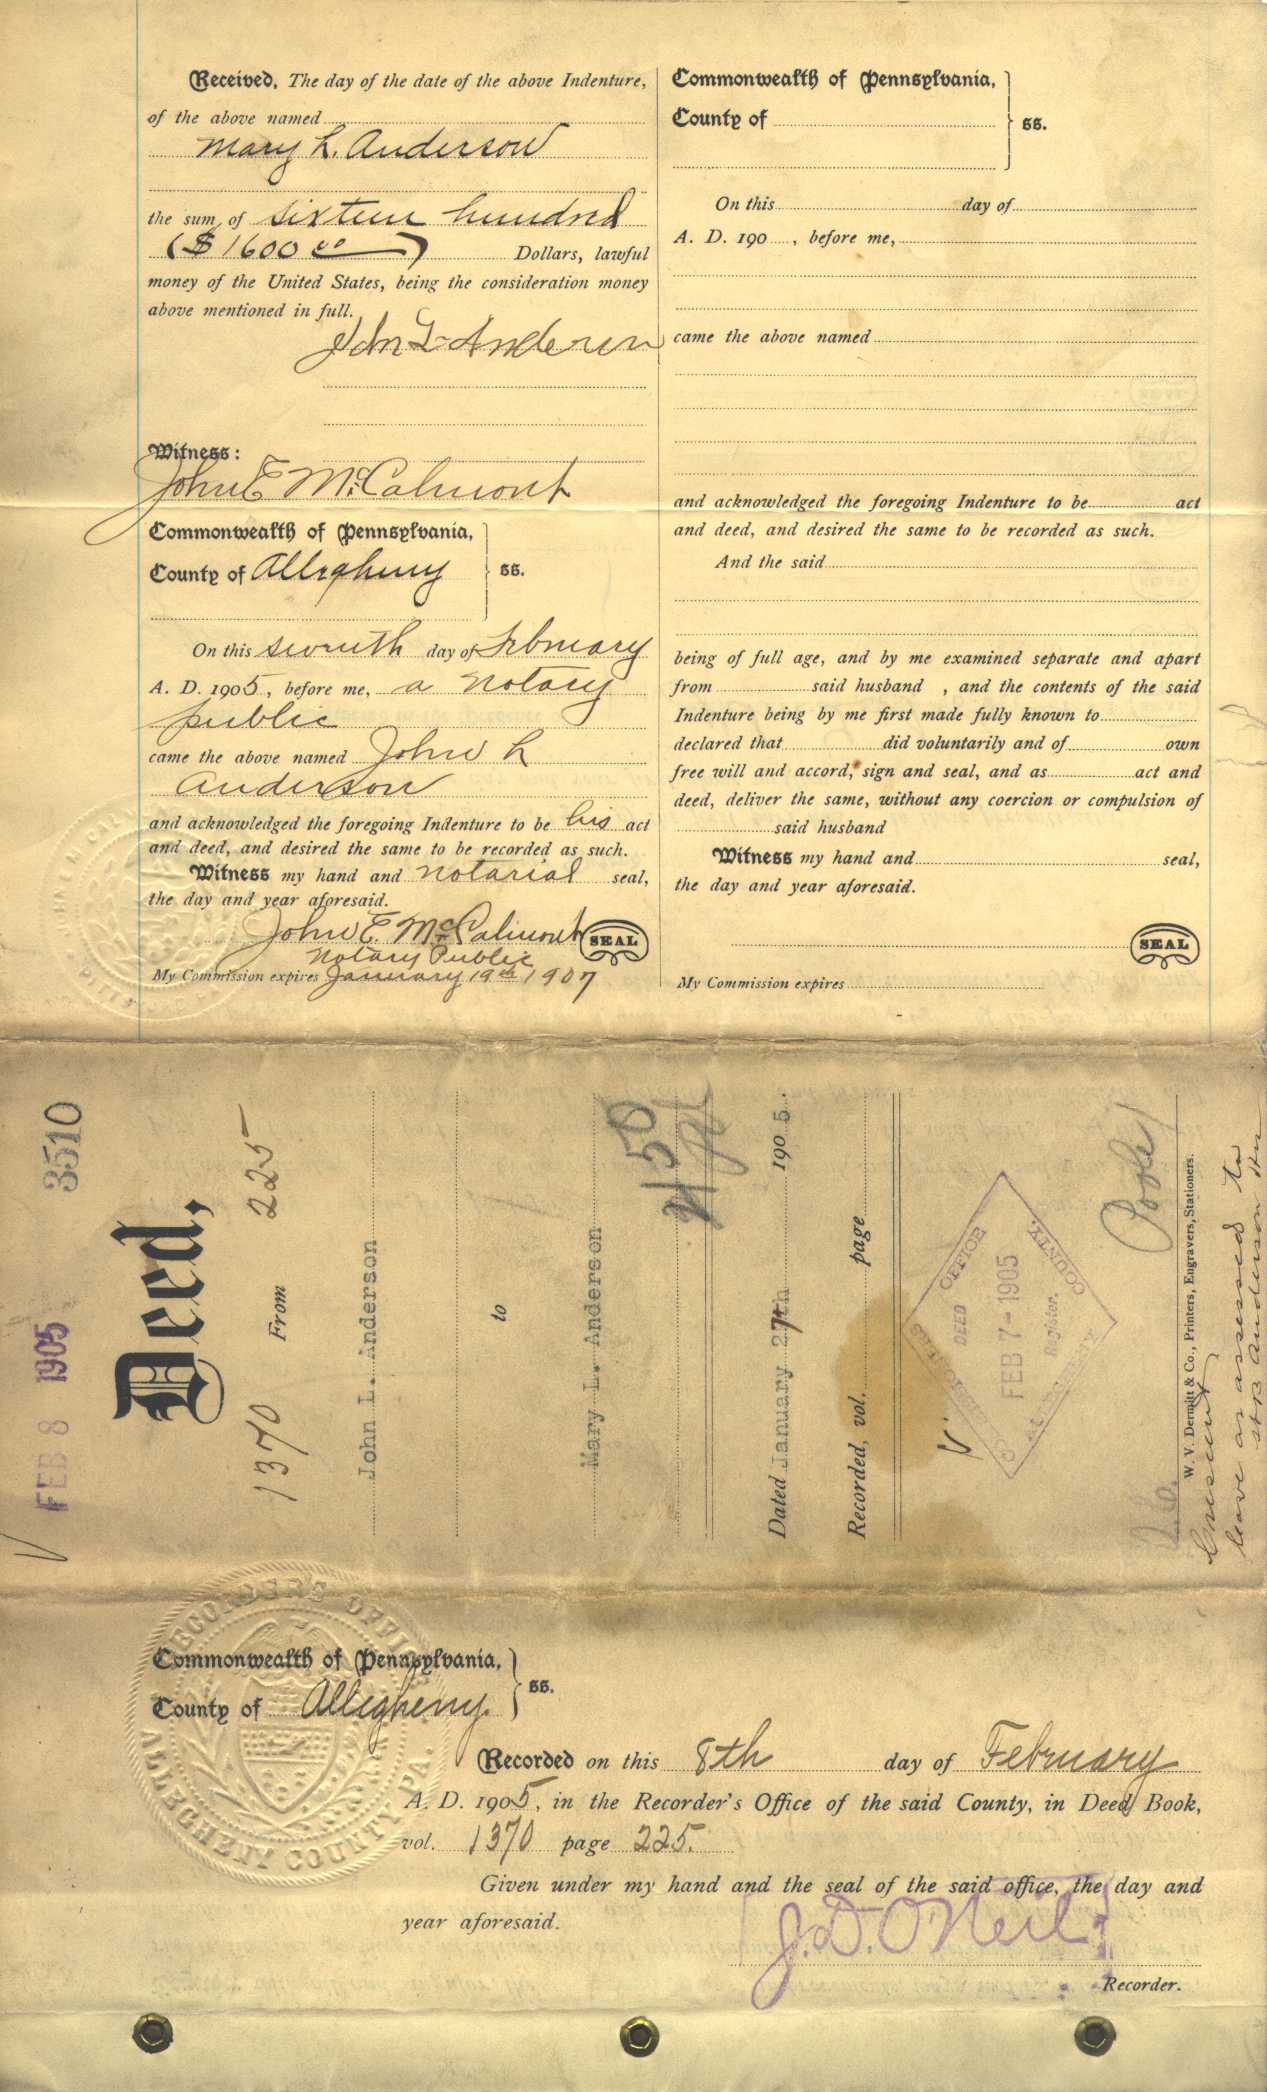 Received, The day of the date of the above Indenture,
of the above named
Mary L. Anderson
the sum of sixteen hundred
($1600 00) Dollars, lawful
money of the United States, being the consideration money
above mentioned in full.
John L Anderson
Witness:
John E McCalmont
Commonwealth of Pennsylvania,
County of Allegheny ss.
On this seventh day of February
A. D. 1905, before me, a notary
public
came the above named John L
Anderson
and acknowledged the foregoing Indenture to be his act
and deed, and desired the same to be recorded as such.
Witness my hand and notarial seal,
the day and year aforesaid.
John E. McCalmont SEAL
Notary Public
My Commission expires January 19th 1907
Commonwealth of Pennsylvania,
County of ss.
On this day of
A. D. 190 , before me,
came the above named
and acknowledged the foregoing Indenture to be act
and deed, and desired the same to be recorded as such.
And the said
being of full age, and by me examined separate and apart
from said husband , and the contents of the said
Indenture being by me first made fully known to
declared that did voluntarily and of own
free will and accord, sign and seal, and as act and
deed, deliver the same, without any coercion or compulsion of
said husband
Witness my hand and seal,
the day and year aforesaid.
SEAL
My Commission expires
FEB 8 1905 3510
Deed,
1370 From 225
John L. Anderson
to
Mary L. Anderson
Dated January 27th 1905.
Recorded, vol. page
OFFICE COUNTY.
DEED
FEB 7-1905
Register.
W. V. Dermitt & Co., Printers, Engravers, Stationers.
leave as assessed to
RECORDER'S OFFICE
ALLEGHENY COUNTY, PA.
Commonwealth of Pennsylvania,
County of Allegheny ss.
Recorded on this 8th day of February
A. D. 1905, in the Recorder's Office of the said County, in Deed Book,
vol. 1370 page 225.
Given under my hand and the seal of the said office, the day and
year aforesaid.
J. D. O'Neil
Recorder.